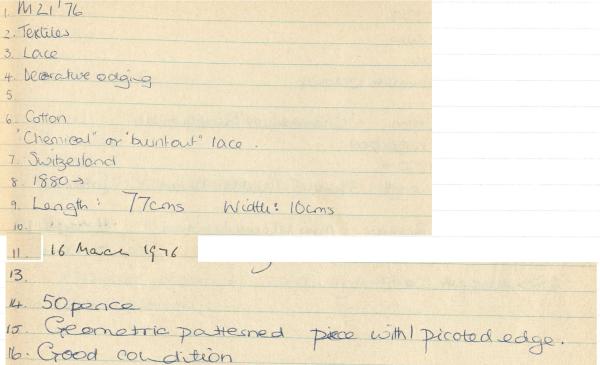 1. M21'76
2. Textiles
3. Lace
4. Decorative edging
5
6. Cotton
"Chemical" or "burntout" lace.
7. Switzerland
8. 1880→
9. Length: 77cms Width: 10cms
10.
11. 16 March 1976
13.
14. 50pence
15. Geometric patterned piece with 1 picoted edge.
16. Good condition